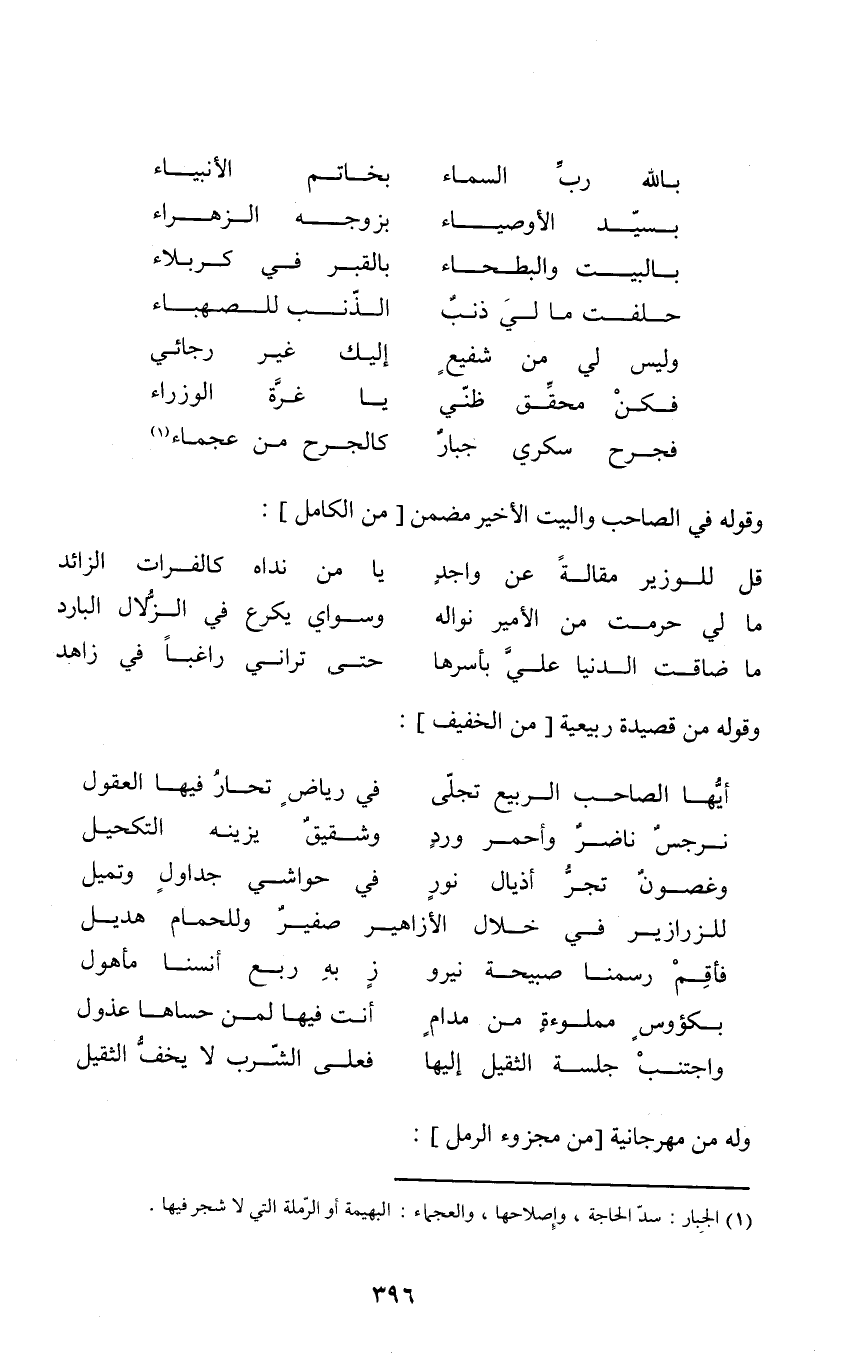 بالله ربِّ السماء بخاتم الأنبياء
بسيّد الأوصياء بزوجه الزهراء
بالبيت والبطحاء بالقبر في كربلاء
حلفت ما ليَ ذنبٌ الذّنب للصهباء
وليس لي من شفيعٍ إليك غير رجائي
فكنْ محقِّق ظنّي يا غرَّة الوزراء
فجرح سكري جبارٌ كالجرح من عجماء(١)
وقوله في الصاحب والبيت الأخير مضمن [ من الكامل ] :
قل للوزير مقالةً عن واجدٍ يا من نداه كالفرات الزائد
ما لي حرمت من الأمير نواله وسواي يكرع في الزُّلال البارد
ما ضاقت الدنيا عليَّ بأسرها حتى تراني راغباً في زاهد
وقوله من قصيدة ربيعية [ من الخفيف ] :
أيُّها الصاحب الربيع تجلّى في رياضٍ تحارُ فيها العقول
نرجسٌ ناضرٌ وأحمر وردٍ وشقيقٌ يزينه التكحيل
وغصونٌ تجرُّ أذيال نورٍ في حواشي جداولٍ وتميل
للزرازير في خلال الأزاهير صفيرٌ وللحمام هديل
فأقِمْ رسمنا صبيحة نيرو زٍ بهِ ربع أنسنا مأهول
بكؤوسٍ مملوءةٍ من مدامٍ أنت فيها لمن حساها عذول
واجتنبْ جلسة الثقيل إليها فعلى الشّرب لا يخفُّ الثقيل
وله من مهرجانية [من مجزوء الرمل ] :
(١) الجبار : سدّ الحاجة ، وإصلاحها ، والعجماء : البهيمة أو الرّملة التي لا شجر فيها .
٣٩٦